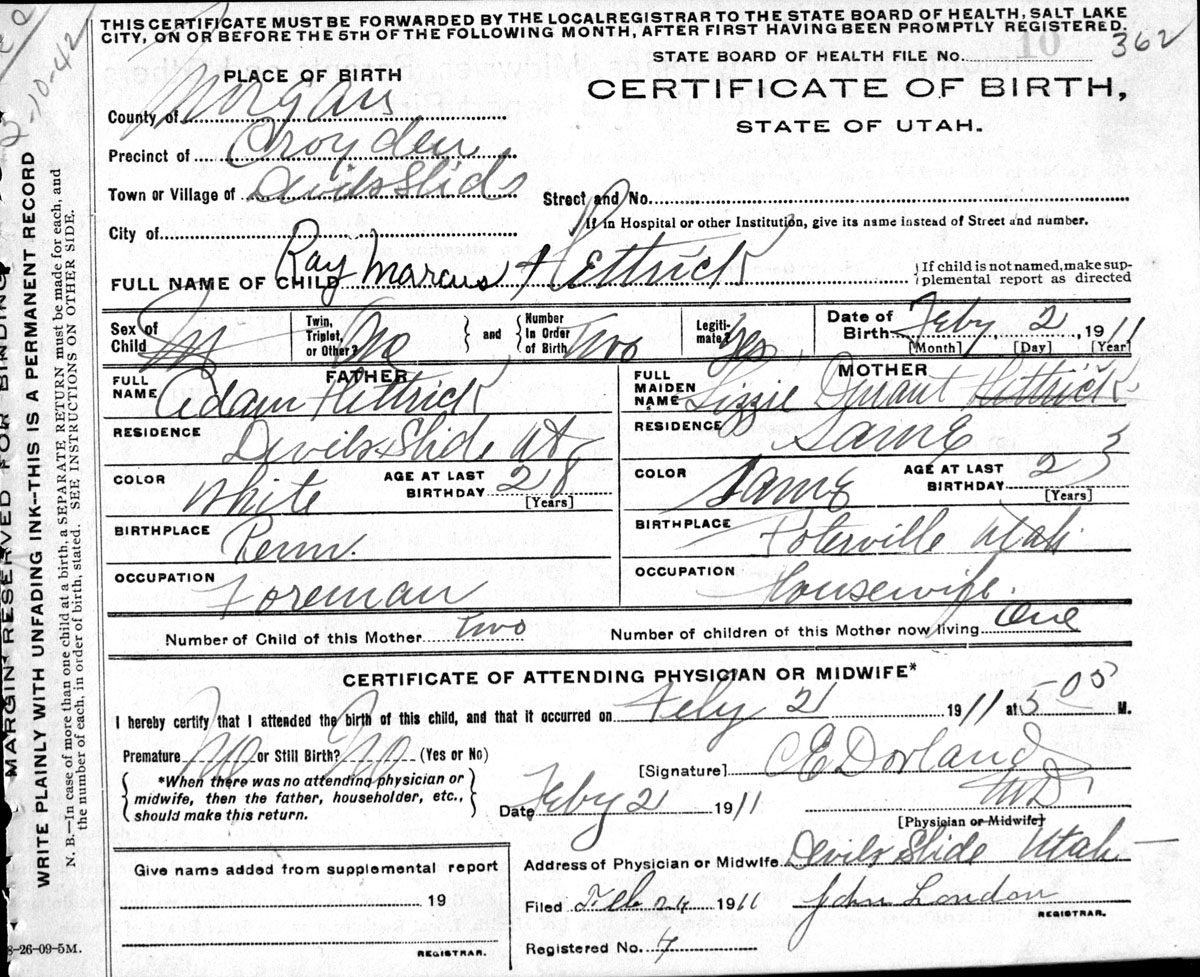 THIS CERTIFICATE MUST BE FORWARDED BY THE LOCAL REGISTRAR TO THE STATE BOARD OF HEALTH, SALT LAKE
CITY, ON OR BEFORE THE 5TH OF THE FOLLOWING MONTH, AFTER FIRST HAVING BEEN PROMPTLY REGISTERED.
10
362
STATE BOARD OF HEALTH FILE No.
2-10-42
PLACE OF BIRTH
CERTIFICATE OF BIRTH,
STATE OF UTAH.
County of Morgan
Precinct of Croyden
Town or Village of Devils Slide
Street and No.
If in Hospital or other Institution, give its name instead of Street and number.
City of
FULL NAME OF CHILD Ray Marcus Hettrick
{If child is not named, make sup-
plemental report as directed
Sex of Child M Twin, Triplet, or Other? No } and { Number In Order of Birth Two Legiti-mate? Yes Date of Birth Feby 2, 1911
[Month] [Day] [Year]
FATHER MOTHER
FULL NAME Adam Hettrick FULL MAIDEN NAME Lizzie Durrant Hettrick
RESIDENCE Devils Slide Ut, RESIDENCE Same
COLOR White AGE AT LAST BIRTHDAY 28 [Years] COLOR Same AGE AT LAST BIRTHDAY 23 [Years]
BIRTHPLACE Penn. BIRTHPLACE Poterville Utah
OCCUPATION Foreman OCCUPATION Housewife.
Number of Child of this Mother Two Number of children of this Mother now living One
CERTIFICATE OF ATTENDING PHYSICIAN OR MIDWIFE*
I hereby certify that I attended the birth of this child, and that it occurred on Feby 2 1911 at M.
Premature No or Still Birth? No (Yes or No)
{*When there was no attending physician or
midwife, then the father, householder, etc.,
should make this return.}
[Signature] CE Dorland
MD
Date Feby 2 1911
[Physician or Midwife]
Address of Physician or Midwife Devils Slide Utah
Filed Feb 24 1911 John London
REGISTRAR.
Registered No. 7
Give name added from supplemental report
19
REGISTRAR.
8-26-09-5M.
MARGIN RESERVED FOR BINDING
WRITE PLAINLY WITH UNFADING INK--THIS IS A PERMANENT RECORD
N. B.—In case of more than one child at a birth, a SEPARATE RETURN must be made for each, and
the number of each, in order of birth, stated. SEE INSTRUCTIONS ON OTHER SIDE.